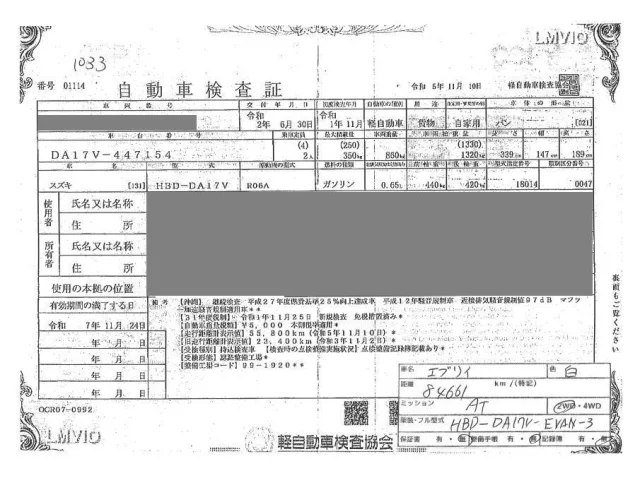 LMVIO
1033
番号 01114
自動車検査証
令和 5年11月10日 軽自動車検査協会
車両番号 交付年月日 初度検査年月 自動車の種別 用途 自家用・事業用の別 車体の形状
令和 2年 6月30日 令和 1年11月 軽自動車 貨物 自家用 バン [021]
車台番号 乗車定員 最大積載量 車両重量 車両総重量 長さ 幅 高さ
DA17V-447154 (4) 2人 (250) 350kg 860kg (1330) 1320kg 339cm 147cm 189cm
車名 型式 原動機の型式 燃料の種類 型式指定番号 類別区分番号
スズキ [131] HBD-DA17V R06A ガソリン 0.65L 440kg 420kg 18014 0047
使用者 氏名又は名称
住所
所有者 氏名又は名称
住所
使用の本拠の位置
有効期間の満了する日
令和 7年11月24日
年 月 日
年 月 日
年 月 日
備考
【沖縄】 継続検査 平成27年度燃費基準25%向上達成車 平成12年騒音規制車 近接排気騒音規制値97dB マフラ
ー加速騒音規制適用車**
[走行距離計表示値] 55,800km (令和5年11月10日)*
[旧走行距離計表示値] 23,400km (令和3年11月2日)
[受検形態] 認証整備工場*
[整備工場コード] 99-1920**
裏面もご覧ください
車名 エブリィ 色 白
距離 84661 km/(特記)
ミッション AT 2WD・4WD
車検・フル型式 HBD-DA17V-EVAN-3
保証書 有・無 整備手帳 有・無 記録簿 有・無
OCR07-0992
LMVIO
軽自動車検査協会